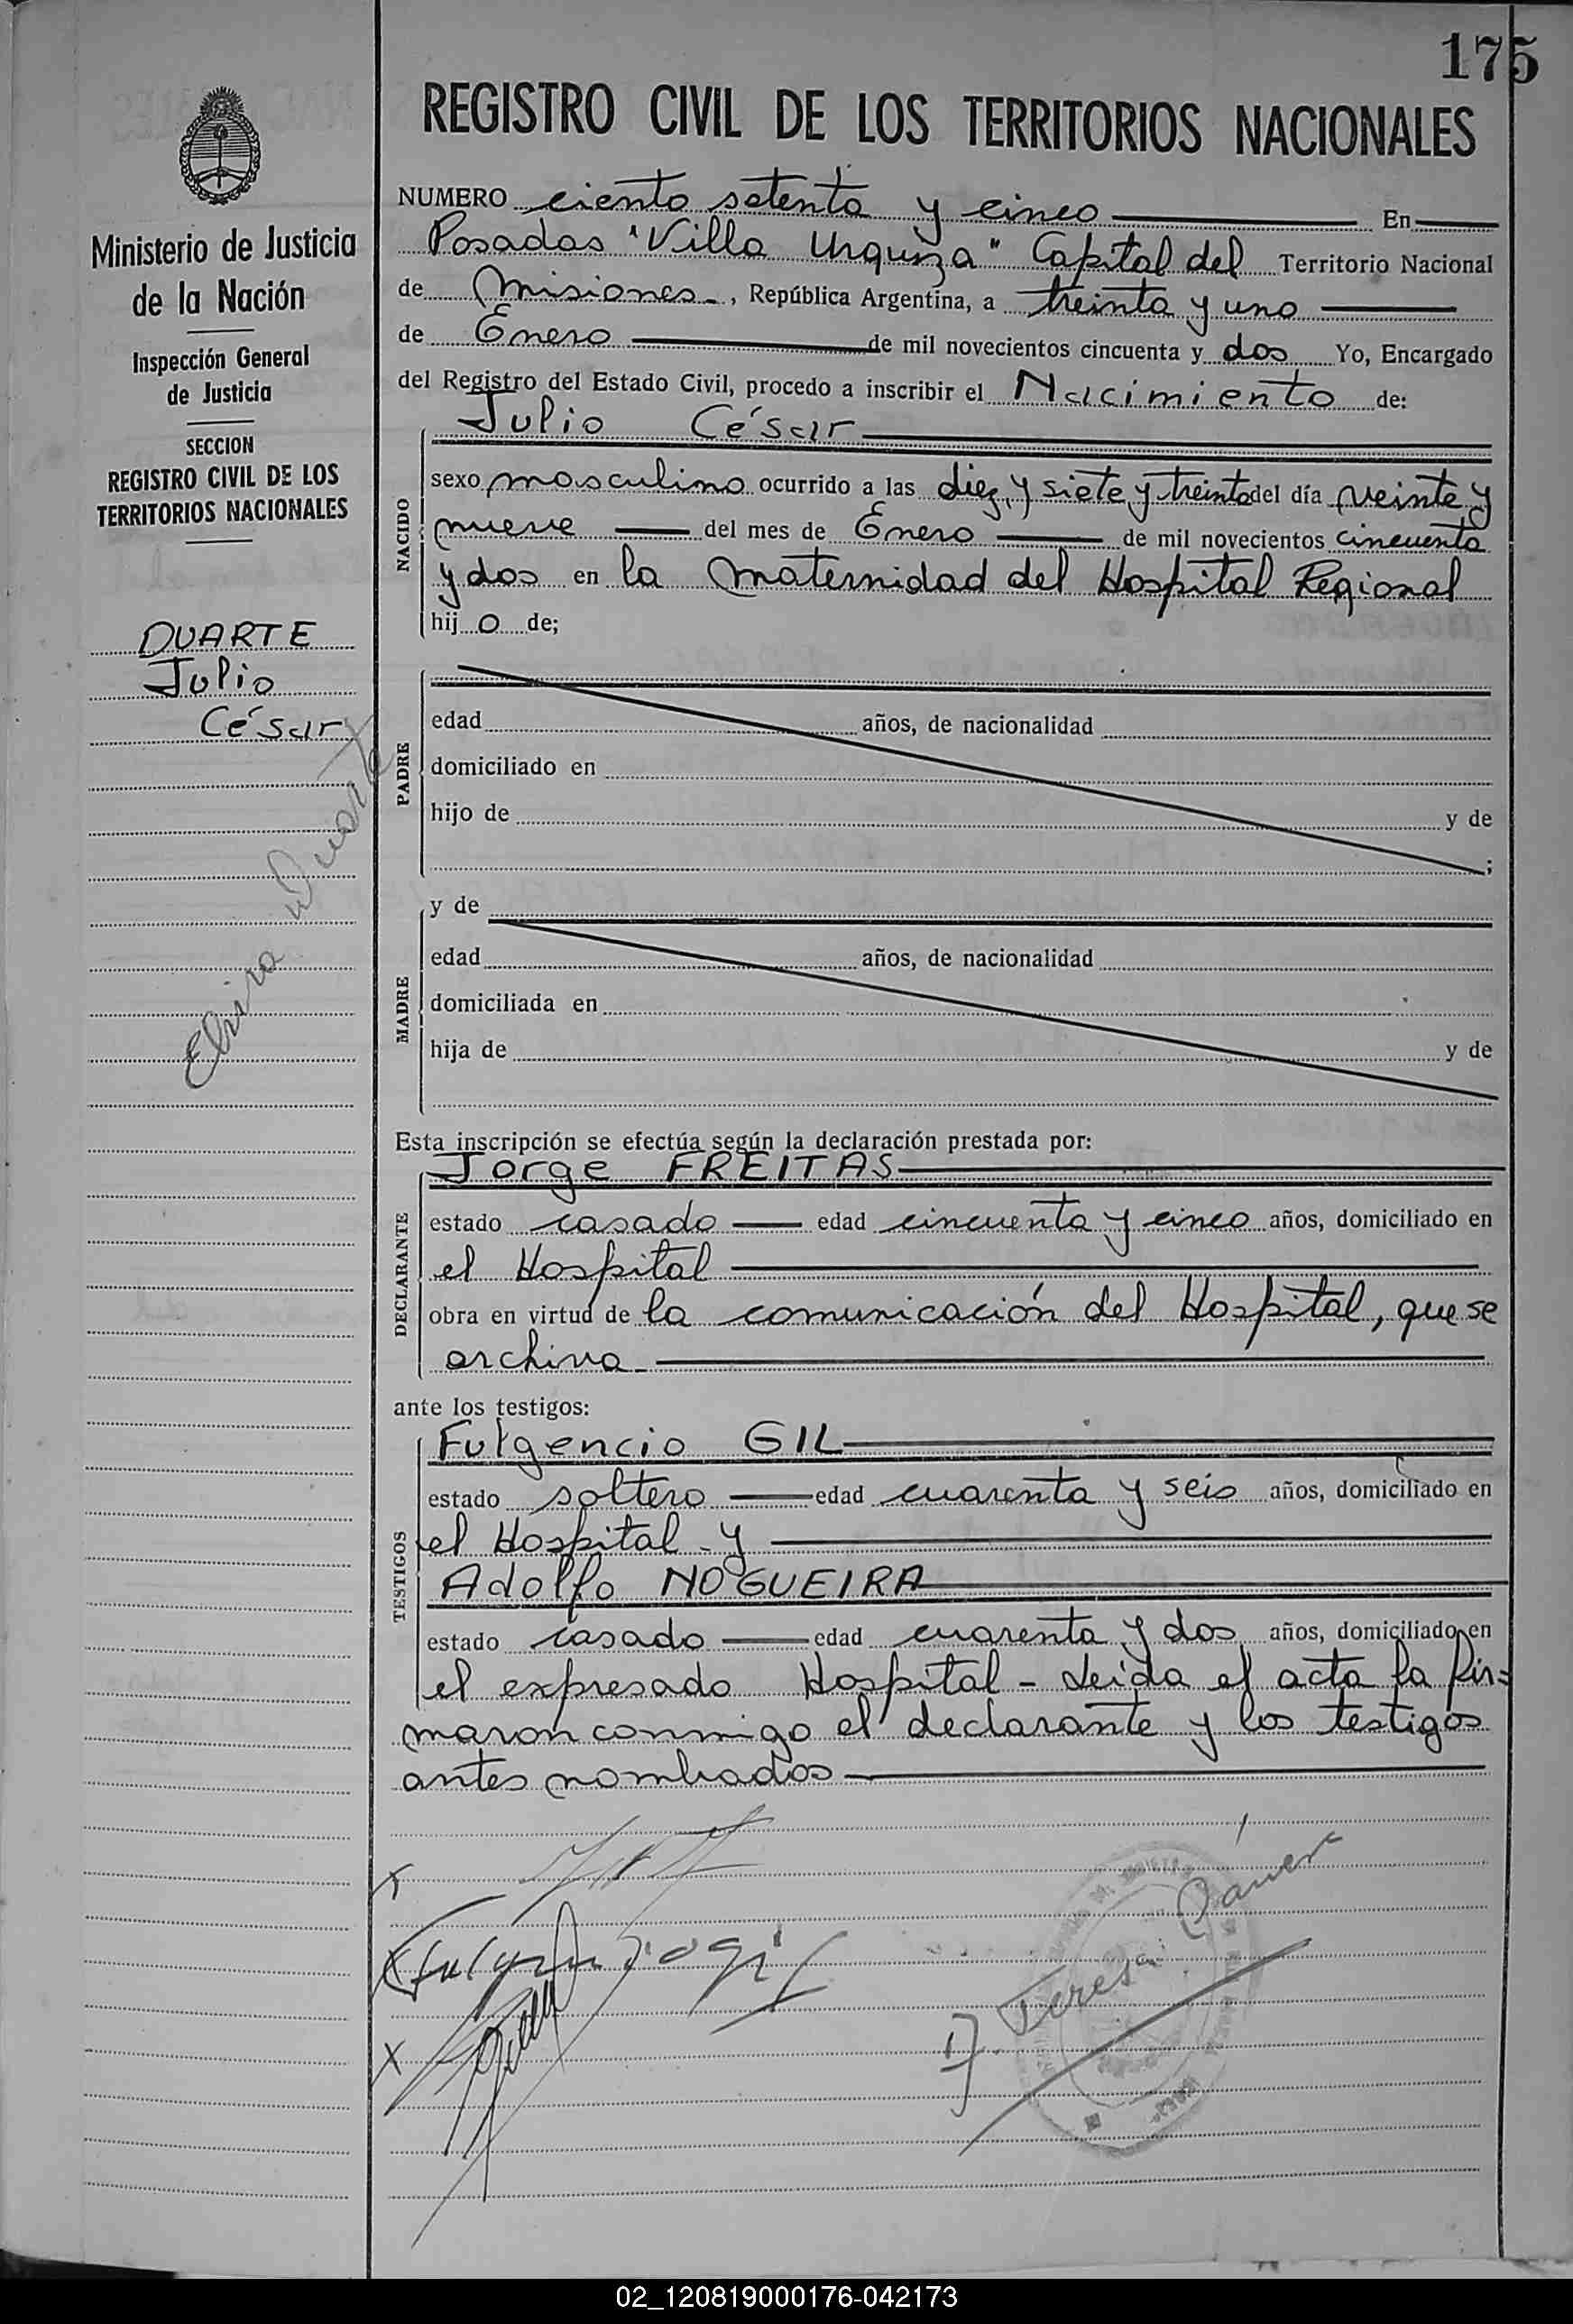 175
REGISTRO CIVIL DE LOS TERRITORIOS NACIONALES
Ministerio de Justicia
de la Nación
Inspección General
de Justicia
SECCION
REGISTRO CIVIL DE LOS
TERRITORIOS NACIONALES
DUARTE
Julio
César
Elvira Duarte
NUMERO ciento setenta y cinco En
Posadas "Villa Urquiza" Capital del Territorio Nacional
de Misiones, República Argentina, a treinta y uno
de Enero de mil novecientos cincuenta y dos Yo, Encargado
del Registro del Estado Civil, procedo a inscribir el Nacimiento de:
Julio César
NACIDO
sexo masculino ocurrido a las diez y siete y treinta del día veinte y
nueve del mes de Enero de mil novecientos cincuenta
y dos en la Maternidad del Hospital Regional
hij o de;
PADRE
edad años, de nacionalidad
domiciliado en
hijo de y de
;
MADRE
y de
edad años, de nacionalidad
domiciliada en
hija de y de
Esta inscripción se efectúa según la declaración prestada por:
DECLARANTE
Jorge FREITAS
estado casado edad cincuenta y cinco años, domiciliado en
el Hospital
obra en virtud de la comunicación del Hospital, que se
archiva
ante los testigos:
TESTIGOS
Fulgencio GIL
estado soltero edad cuarenta y seis años, domiciliado en
el Hospital y
Adolfo NOGUEIRA
estado casado edad cuarenta y dos años, domiciliado en
el expresado Hospital - Leída el acta la fir=
maron conmigo el declarante y los testigos
antes nombrados
x
x Fulgencio gil
x
Teresa
02_120819000176-042173